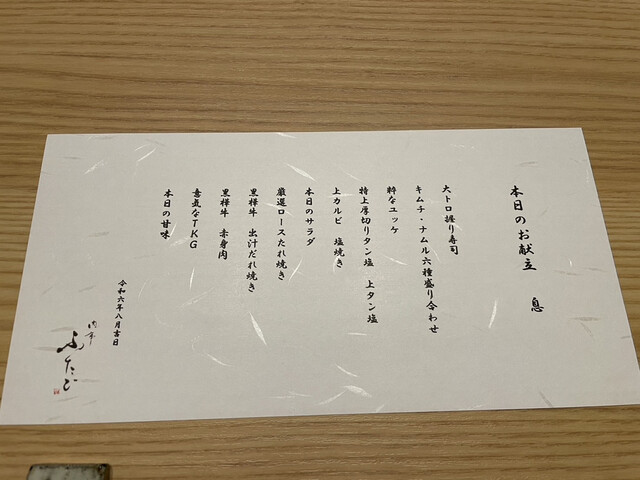 本日のお献立　息
大トロ握り寿司
キムチ・ナムル六種盛り合わせ
粋なユッケ
特上厚切りタン塩　上タン塩
上カルビ　塩焼き
本日のサラダ
厳選ロースたれ焼き
黒樺牛　出汁だれ焼き
黒樺牛　赤身肉
意気なTKG
本日の甘味
令和六年八月吉日
肉亭
ふたご